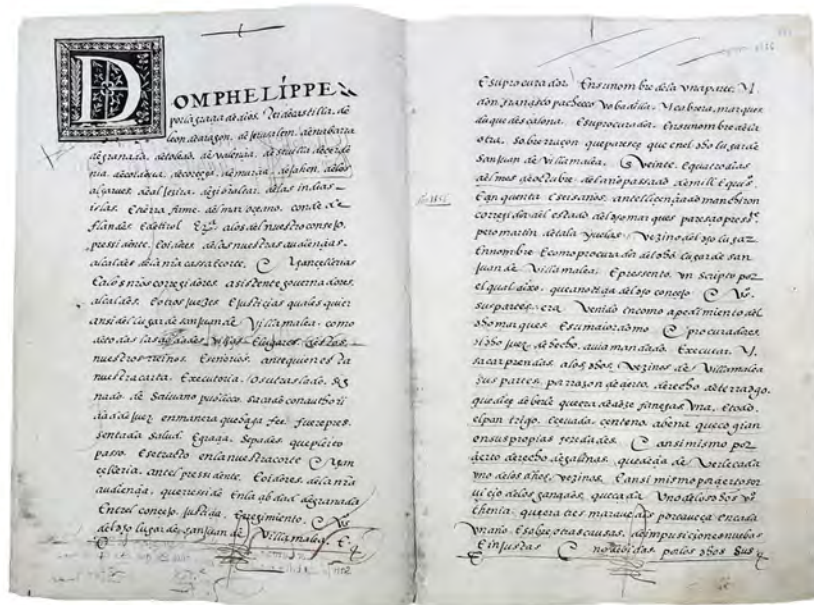 DOMPHELÍPPE
por la graçia de dios. Rei de castilla. de
leon. de aragon. de Jerusalem. de nabarra
de granada. de toledo. de valençia. de seuilla. de çerde
nia. de cordoua. de corçega. de murçia. de Jahen. delos
algarues. de algezira. de gibraltar. delas indias
islas. E tierra firme. del mar oceano. conde de
flandes. E de tirol Etc. alos del nuestro consejo.
pressidente. E oidores. delas nuestras audiençias.
alcaldes dela nra cassa E corte. E chançellerias
E alos nros corregidores. asistente gouernadores.
alcaldes. E otros Juezes E Justiçias quales quier
ansi del lugar de san Juan de Villamalea. como
de todas las çiudades Villas E lugares. destos
nuestros rreinos. E señorios. ante quien esta
nuestra carta. Executoria. o su traslado. sig
nado de Scriuano publico. sacado con authori
dad de Juez en manera que haga fee. fuere pres
sentada Salud. E graçia. Sepades que pleito
passo. E se tracto en la nuestra corte E chan
çelleria. ante el pressidente. E oidores. dela nra
audiençia. que rreside En la çibdad de granada
Entre el conçejo. Justiçia. E rregimiento. E Vos
del dho lugar de san Juan de Villamalea. E
E su procurador. En su nombre dela una parte. Y
don françisco pacheco bobadilla. Y cabrera, marques
duque de escalona. E su procurador. En su nombre dela
otra. sobre rraçon que paresçe que en el dho lugar de
san Juan de Villamalea. E Veinte. E quatro dias
del mes de octubre. del año passado de mill E quiºs.
E çinquenta E seis años. ante el liçençiado manchiron
corregidor del estado del dho marques paresçio pressᵗᵉ
pero martin de tala yuelas. Vezino del dho lugar
En nombre E como procurador del dho lugar de san
Juan de Villamalea. E pressento. un Scripto por
el qual dixo. que a notiçia del dho conçejo E Vºs.
sus partes. era Venido en como a pedimiento del
dho marques. E su maiordomo E procuradores.
el dho Juez. de hecho. auia mandado. Executar. Y
sacar prendas alos dhos. Vezinos de Villamalea
sus partes. por rrazon de çierto. derecho de terradgo.
que diz que de doze fanegas una. E todo.
el pan trigo. çeuada. çenteno. abena que cogian
en sus propias heredades. E ansi mismo por
çierto derecho de gallinas. de Ver cada
uno delos dhos. Vezinos. E ansi mismo por çierto ser
uiçio delos ganados. que cada Uno delos dhos Vºs
thenia. que era tres marauedis por caueça en cada
un año. E sobre otras causas. de imposiciones nuebas
E injustas E por los dhos sus